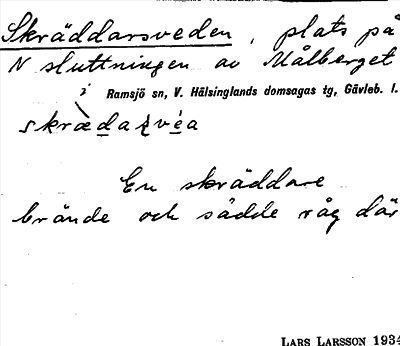 Skräddarsveden, plats på
N sluttningen av Målberget
i Ramsjö sn, V. Hälsinglands domsagas tg, Gävleb. l.
En skräddare
brände och sådde råg där
LARS LARSSON 1934